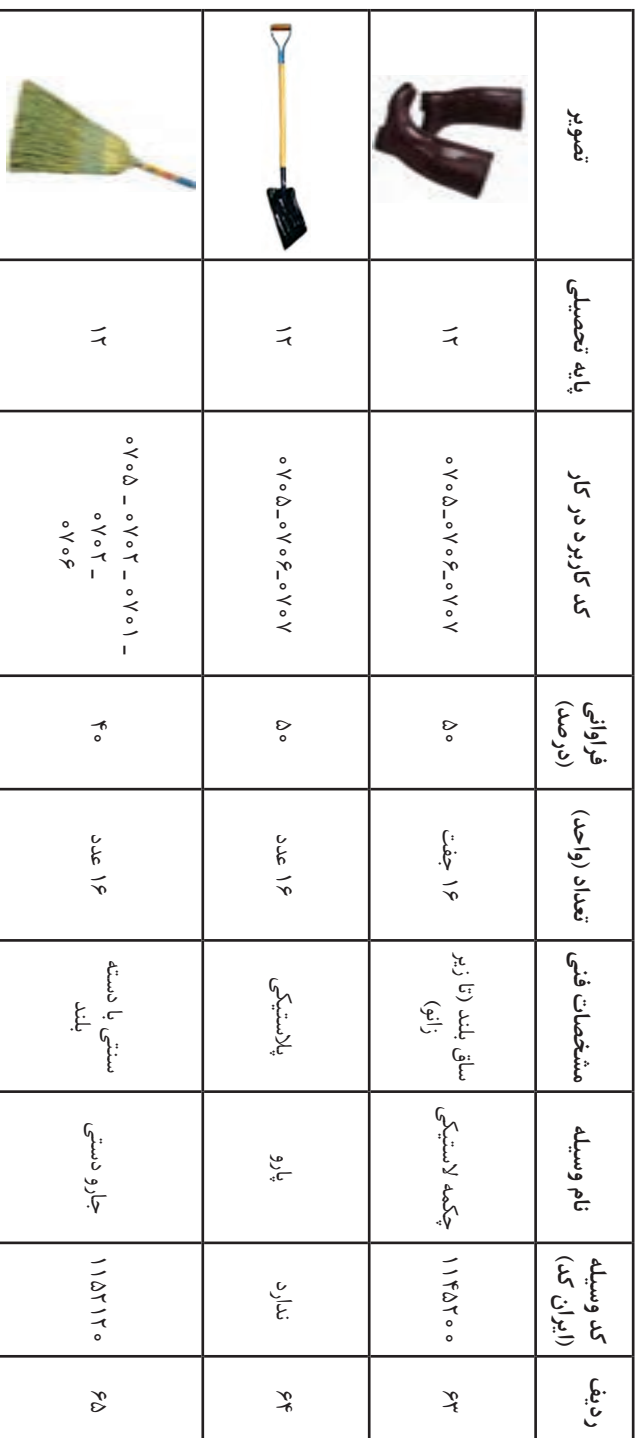 ردیف
کد وسیله
(ایران کد)
نام وسیله
مشخصات فنی
تعداد (واحد)
فراوانی
(درصد)
کد کاربرد در کار
پایه تحصیلی
تصویر
۶۳
۱۱۴۵۲۰۰
چکمه لاستیکی
ساق بلند (تا زیر
زانو)
۱۶ جفت
۵۰
۰۷۰۵_۰۷۰۶_۰۷۰۷
۱۲
۶۴
ندارد
پارو
پلاستیکی
۱۶ عدد
۵۰
۰۷۰۵_۰۷۰۶_۰۷۰۷
۱۲
۶۵
۱۱۵۲۱۲۰
جارو دستی
سنتی با دسته
بلند
۱۶ عدد
۴۰
۰۷۰۵ _ ۰۷۰۲ _ ۰۷۰۱ _
۰۷۰۲ _
۰۷۰۶
۱۲